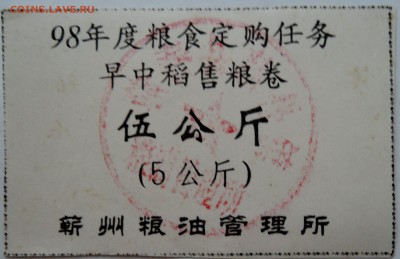 COINS.LAVE.RU
98年度粮食定购任务
早中稻售粮卷
伍公斤
(5公斤)
蕲州粮油管理所